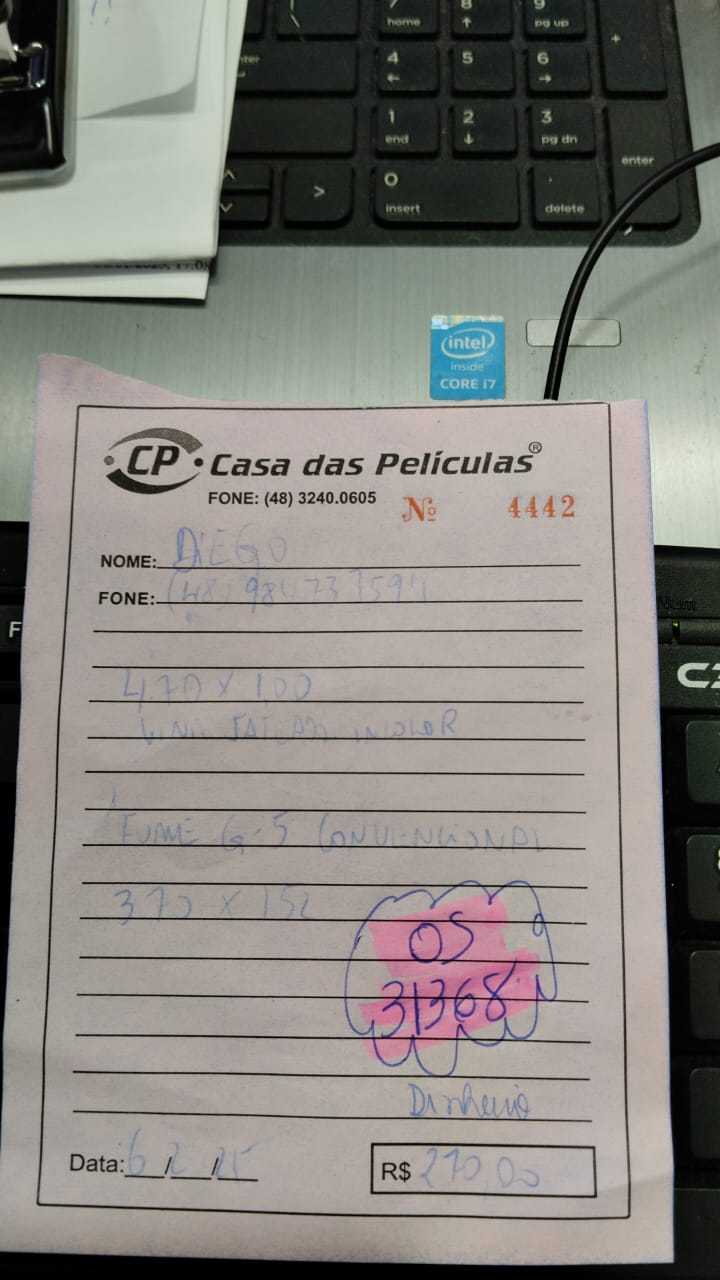 !!
7 home
8 ↑
9 pg up
+
4 ←
5
6 →
1 end
2 ↓
3 pg dn
enter
0 insert
. delete
>
17:08
intel inside CORE i7
CP Casa das Películas®
FONE: (48) 3240.0605
Nº 4442
NOME: DIEGO
FONE: (48)
4,70 x 1,00
INCOLOR
FUME G-5 CONVENCIONAL
370 x 152
OS
31368
Dinheiro
Data: 6/2/25
R$ 270,00
Num
F